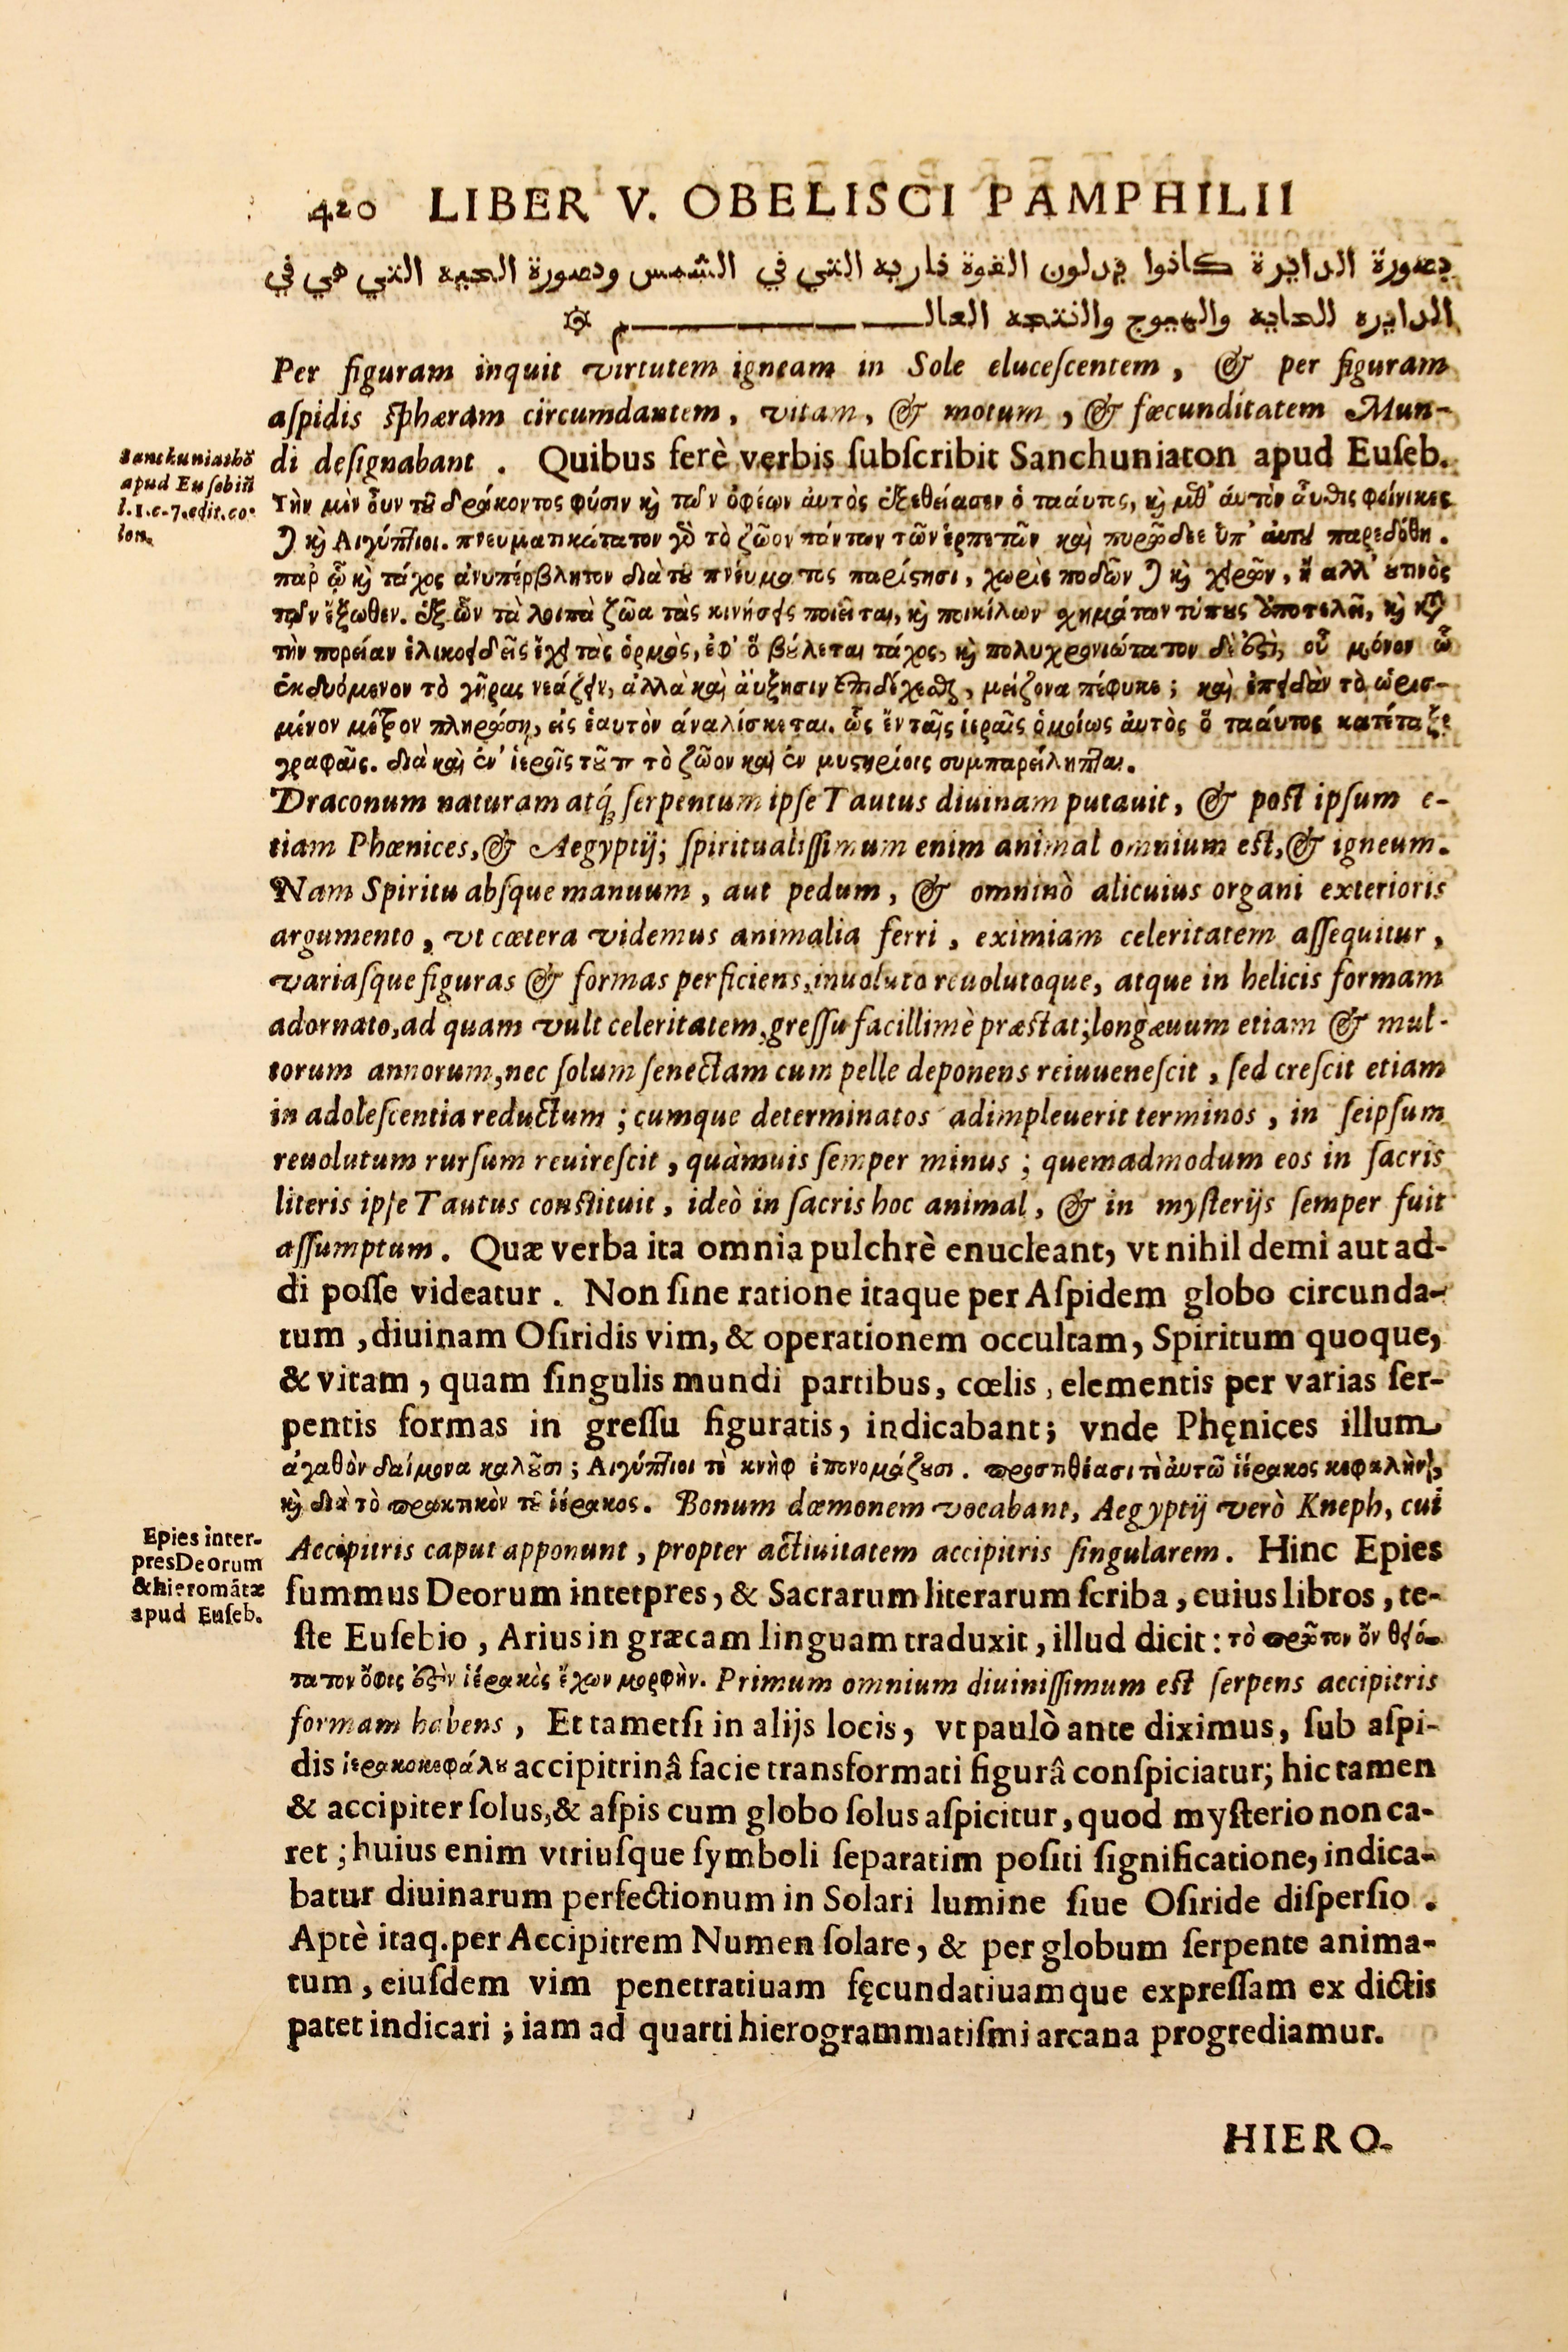 420 LIBER V. OBELISCI PAMPHILII
بصورة الدايرة كانوا يدلون القوة ناريه التي في الشمس وبصورة الحيه التي هي في
الدايره للحايه والهيوج والنتجه العالـــــــم
Per figuram inquit virtutem igneam in Sole eluceſcentem, & per figuram
aſpidis ſphæram circumdantem, vitam, & motum, & fœcunditatem Mun-
di deſignabant. Quibus ferè verbis ſubſcribit Sanchuniaton apud Euſeb.
Sanchuniathō
apud Euſebiū
l.1.c.7.edit.co-
lon.
Τὴν μὲν ὀυν τȣ δράκοντος φύσιν κỳ τῶν ὀφέων ἀυτὸς ἐξεθείασεν ὁ τάαυτος, κỳ μεθ᾽ ἀυτὸν ἀυθις φοίνικες
κỳ Αιγύπτιοι. πνευματικώτατον γὸ τὸ ζῶον πάντων τῶν ἑρπετῶν καὶ πυρῶδες ὑπ᾽ ἀυτȣ παρεδόθη.
παρ ᾧ κỳ τάχος ἀνυπέρβλητον διὰ τȣ πνέυματος παρίςησι, χωρὶς ποδῶν κỳ χειρῶν, ἢ αλλ᾽ ȣ τινὸς
τῶν ἔξωθεν. ἐξ ὧν τὰ λοιπὰ ζῶα τὰς κινήσεις ποιεῖται, κỳ ποικίλων σχημάτων τύπȣς ἀποτελεῖ, κỳ κτ
τὴν πορείαν ἑλικοειδεῖς ἔχει τὰς ὁρμὰς, ἐφ᾽ ὃ βȣλεται τάχος, κỳ πολυχρονιώτατον δέ ἐςι, οὐ μόνον ὦ
ἐκδυόμενον τὸ γῆρας νεάζειν, ἀλλὰ καὶ ἀυξησιν ἐπιδέχεσθαι, μείζονα πέφυκε; καὶ ἐπειδὰν τὸ ὡρισ-
μένον μέτρον πληρώσῃ, εἰς ἑαυτὸν ἀναλίσκεται. ὡς ἐν ταῖς ἱεραῖς ὁμοίως ἀυτὸς ὅ τάαυτος κατέταξε
γραφαῖς. διὰ καὶ ἐν ἱεροῖς τȣτο τὸ ζῶον καὶ ἐν μυςηρίοις συμπαρείληπται.
Draconum naturam atq́; ſerpentum ipſe Tautus diuinam putauit, & poſt ipſum e-
tiam Phœnices, & Aegyptij; ſpiritualiſſimum enim animal omnium eſt, & igneum.
Nam Spiritu abſque manuum, aut pedum, & omninò alicuius organi exterioris
argumento, vt cœtera videmus animalia ferri, eximiam celeritatem aſſequitur,
variaſque figuras & formas perficiens, inuoluto reuolutoque, atque in helicis formam
adornato, ad quam vult celeritatem, greſſu facillimè præſtat; longæuum etiam & mul-
torum annorum, nec ſolum ſenectam cum pelle deponens reiuueneſcit, ſed creſcit etiam
in adoleſcentia reductum; cumque determinatos adimpleuerit terminos, in ſeipſum
reuolutum rurſum reuireſcit, quàmuis ſemper minus; quemadmodum eos in ſacris
literis ipſe Tautus conſtituit, ideò in ſacris hoc animal, & in myſterijs ſemper fuit
aſſumptum. Quæ verba ita omnia pulchrè enucleant, vt nihil demi aut ad-
di poſſe videatur. Non ſine ratione itaque per Aſpidem globo circunda-
tum, diuinam Oſiridis vim, & operationem occultam, Spiritum quoque,
& vitam, quam ſingulis mundi partibus, cœlis, elementis per varias ſer-
pentis formas in greſſu figuratis, indicabant; vnde Phęnices illum
ἀγαθὸν δαίμονα καλȣσι; Αιγύπτιοι τὲ κνὴφ ἐπονομάζȣσι. προστιθέασι τὲ ἀυτῶ ἱέρακος κεφαλὴν,
κỳ διὰ τὸ πρακτικὸν τȣ ἱέρακος. Bonum dæmonem vocabant, Aegyptij verò Kneph, cui
Accipitris caput apponunt, propter actiuitatem accipitris ſingularem. Hinc Epies
Epies inter-
pres Deorum
& hieromātæ
apud Euſeb.
ſummus Deorum interpres, & Sacrarum literarum ſcriba, cuius libros, te-
ſte Euſebio, Arius in græcam linguam traduxit, illud dicit: τὸ πρῶτον ὂν θειό-
τατον ὄφις ἐςὶν ἱέρακὸς ἔχων μορφὴν. Primum omnium diuiniſſimum eſt ſerpens accipitris
formam habens, Et tametſi in alijs locis, vt paulò ante diximus, ſub aſpi-
dis ἱερακοκεφάλȣ accipitrinâ facie transformati figurâ conſpiciatur; hic tamen
& accipiter ſolus, & aſpis cum globo ſolus aſpicitur, quod myſterio non ca-
ret; huius enim vtriuſque ſymboli ſeparatim poſiti ſignificatione, indica-
batur diuinarum perfectionum in Solari lumine ſiue Oſiride diſperſio.
Aptè itaq. per Accipitrem Numen ſolare, & per globum ſerpente anima-
tum, eiuſdem vim penetratiuam fęcundatiuamque expreſſam ex dictis
patet indicari; iam ad quarti hierogrammatiſmi arcana progrediamur.
HIERO-